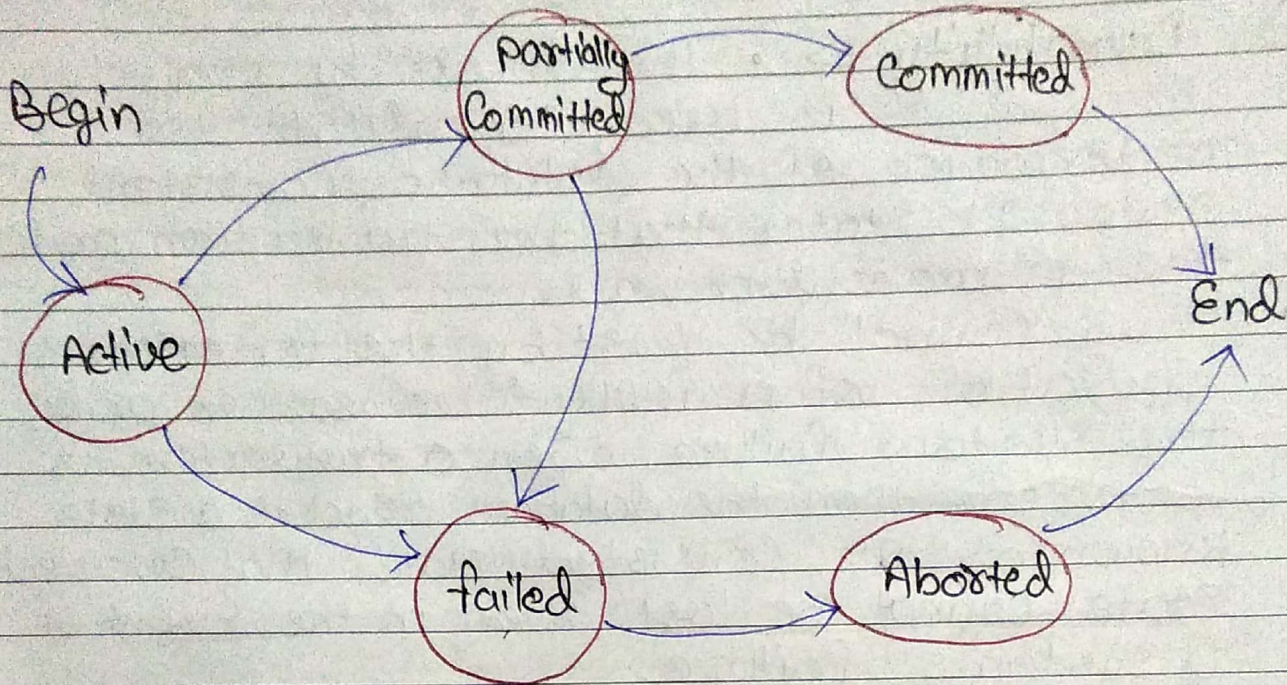 Begin
partially
Committed
Committed
Active
End
failed
Aborted